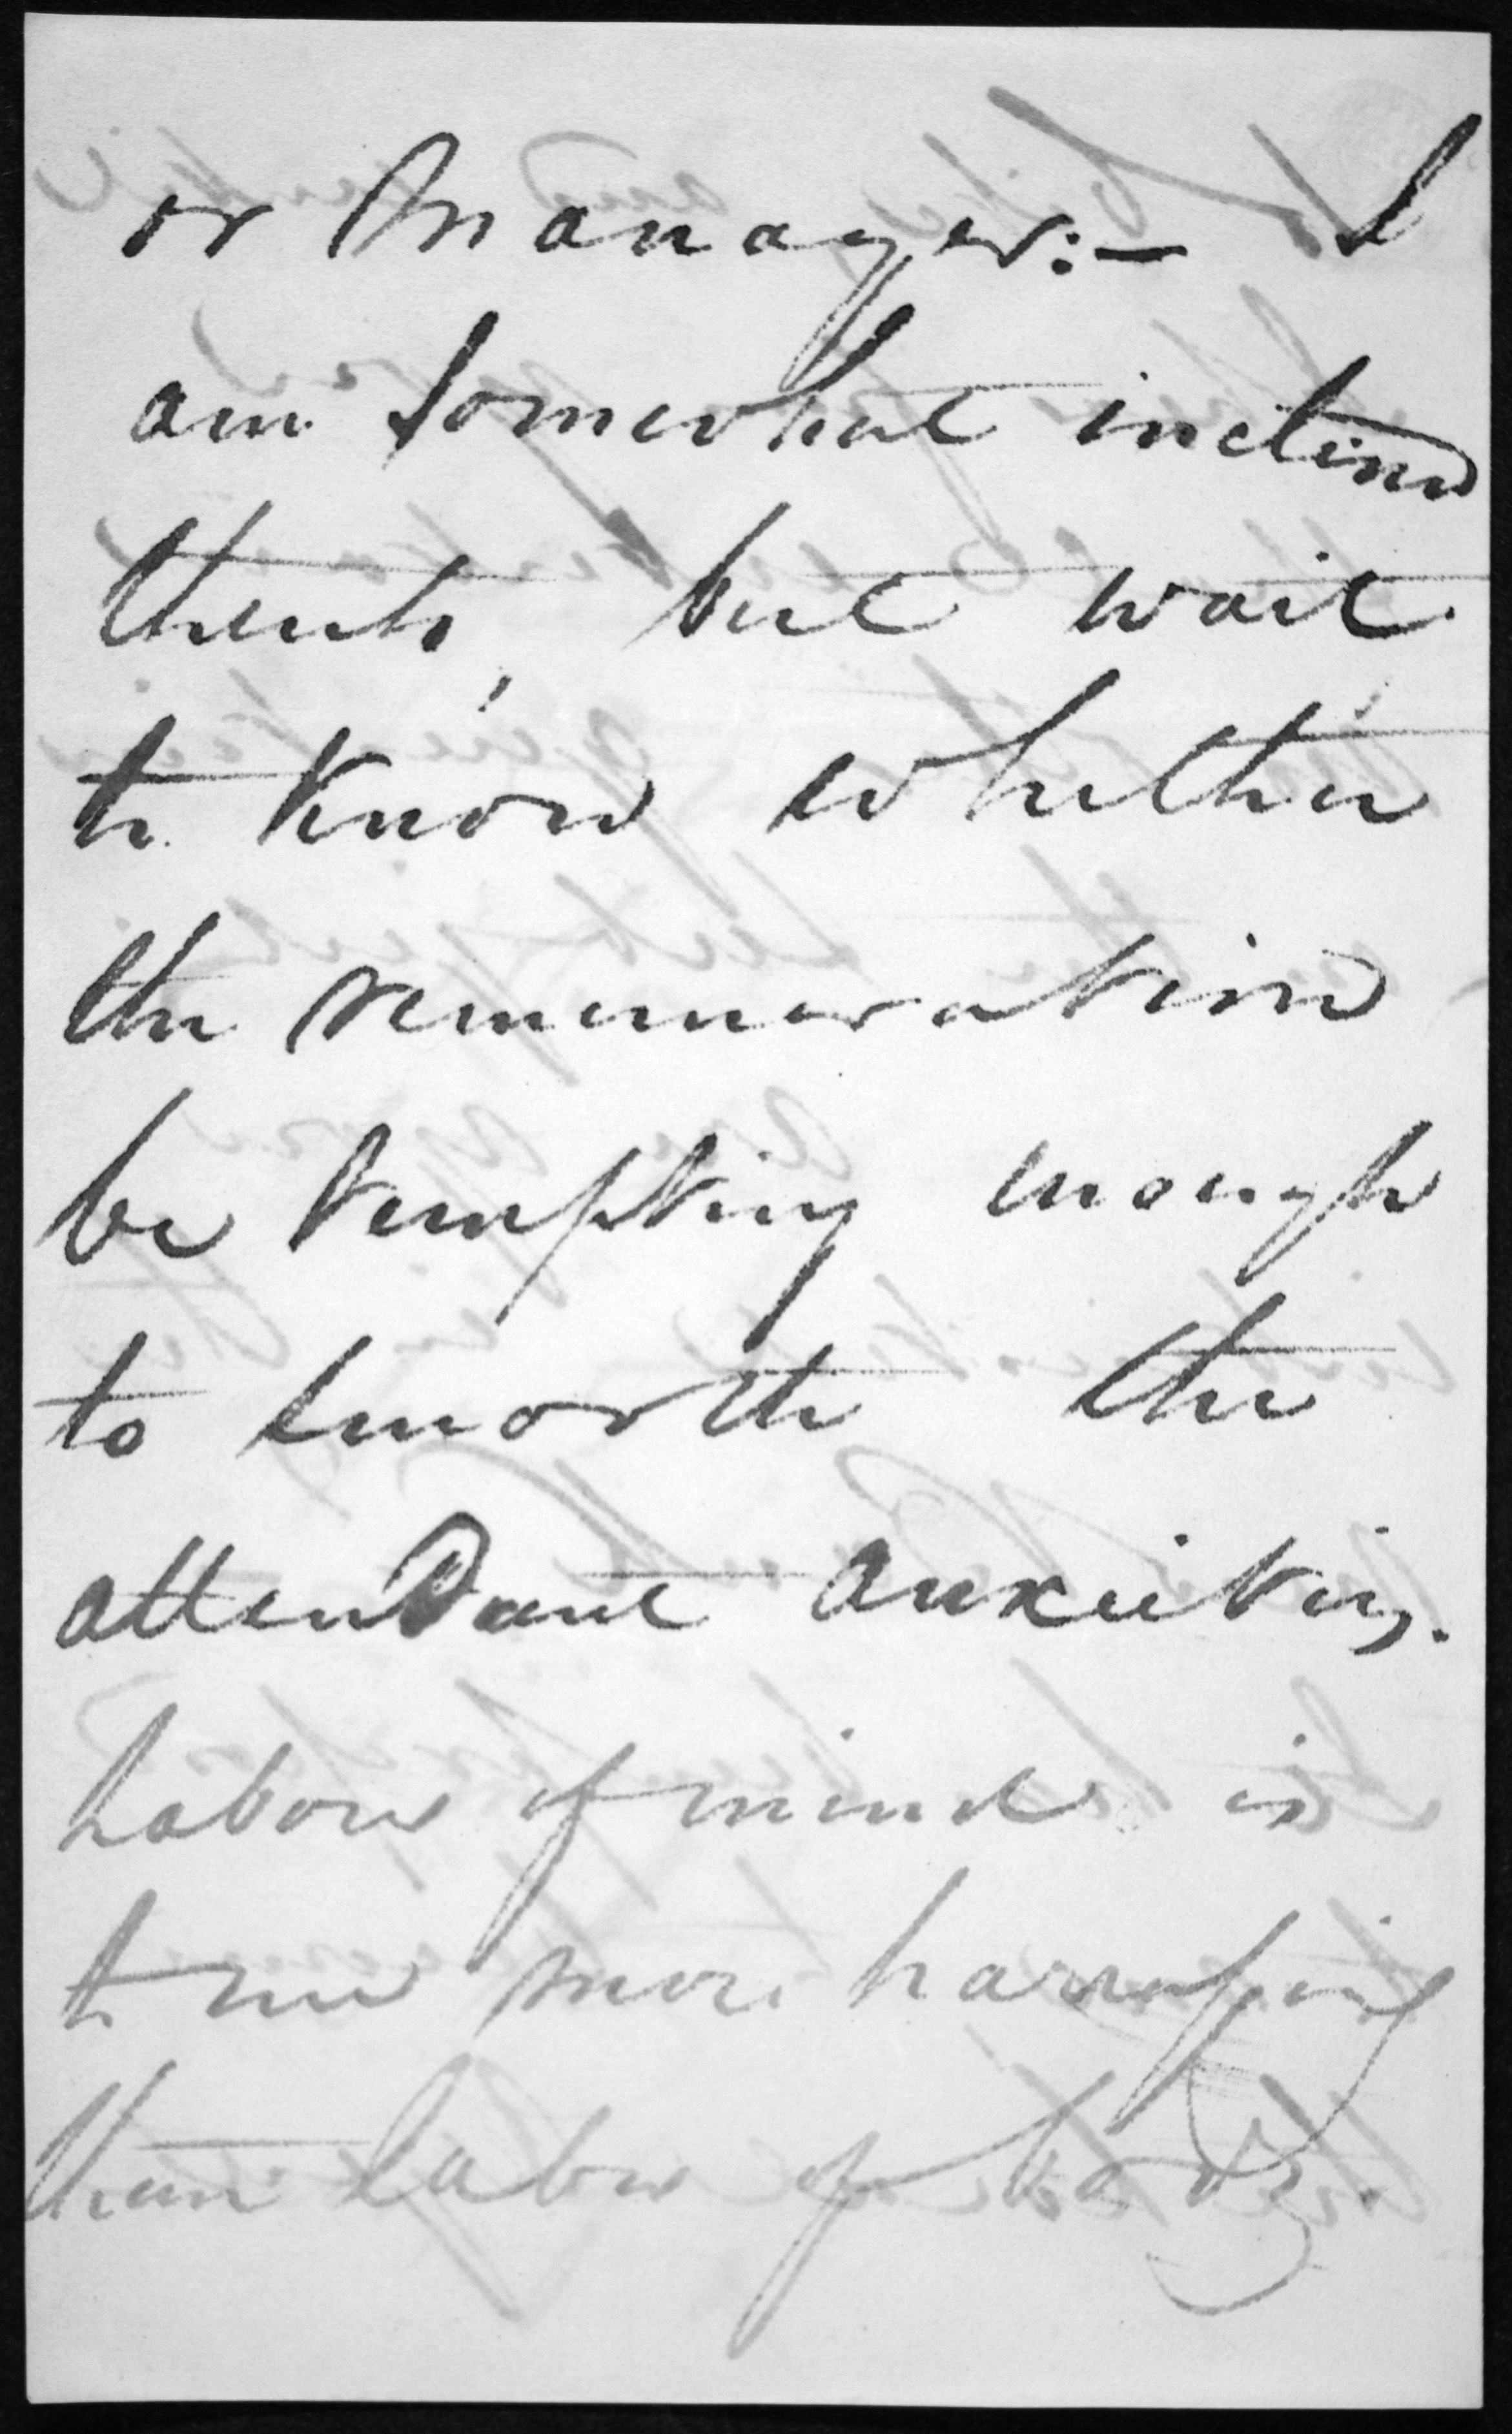 or Manager:— I
am somewhat inclined
thereto, but wait
to know whether
the remuneration
be tempting enough
to smooth the
attendant anxieties.
Labour of mind is
to me more harassing
than labor of body.